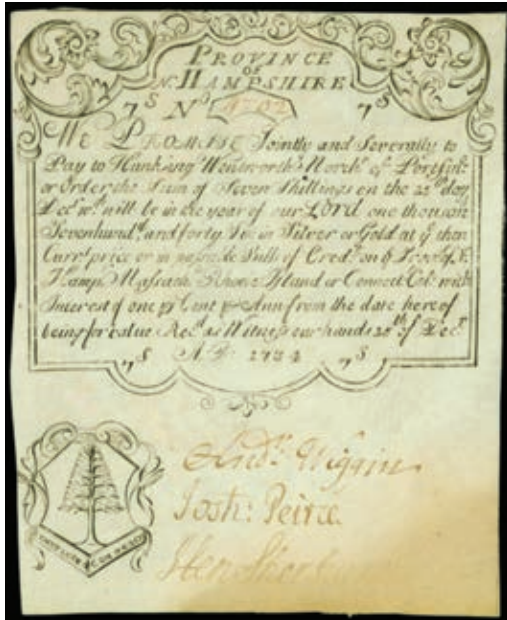 PROVINCE
OF
N. HAMPSHIRE
7S No 7S
WE PROMISE Jointly and Severally to
Pay to Hunking Wentworth & March.t of Portsm.o
or Order the Sum of Seven Shillings on the 25th day
Dec.r w.ch will be in the year of our LORD one thousan
Sevenhund.d and forty Six in Silver or Gold at ye then
Curr.t price or in passable Bills of Cred.t on ye Prov. of N.
Hamp. Massach. Rhode Island or Connect. Col. with
Interest of one p Cent p Ann from the date hereof
being for value Rec.d as Witness our hands 25th of Dec.r
7S A.D. 1734 7S
And.w Wiggin
Josh: Peirce
Hen Sherburne